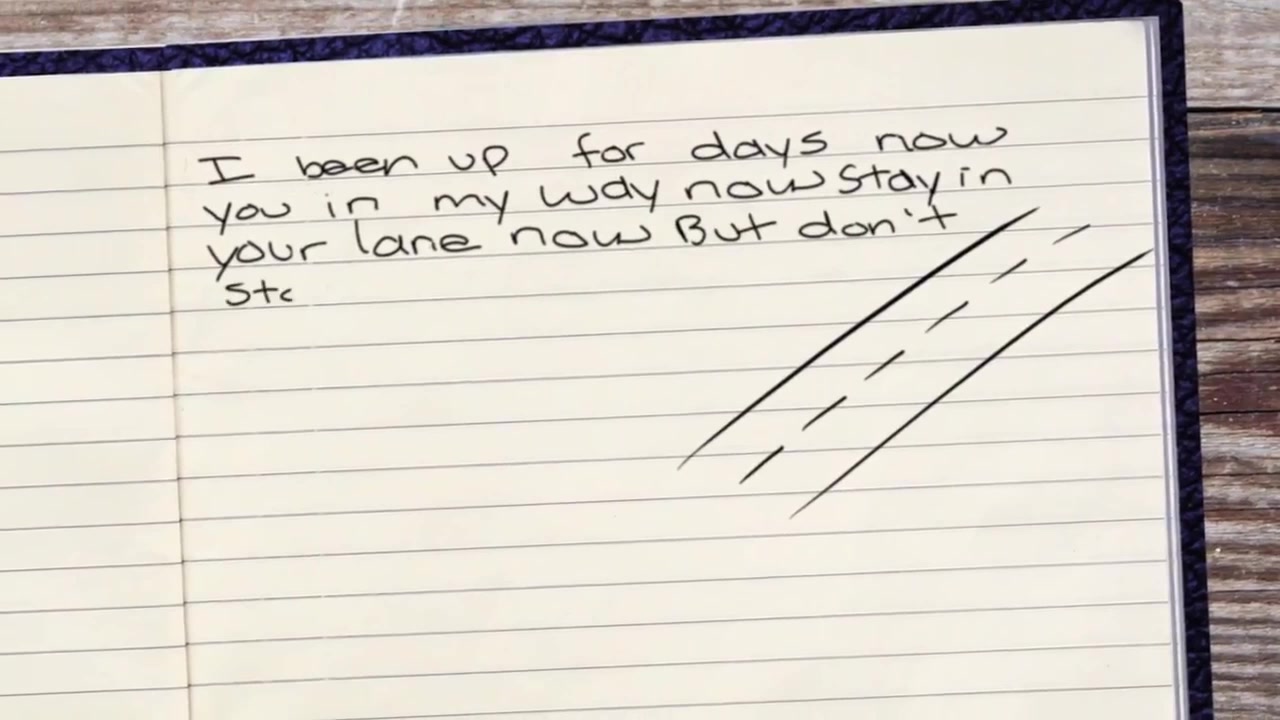 I been up for days now
you in my way now stay in
your lane now But don't